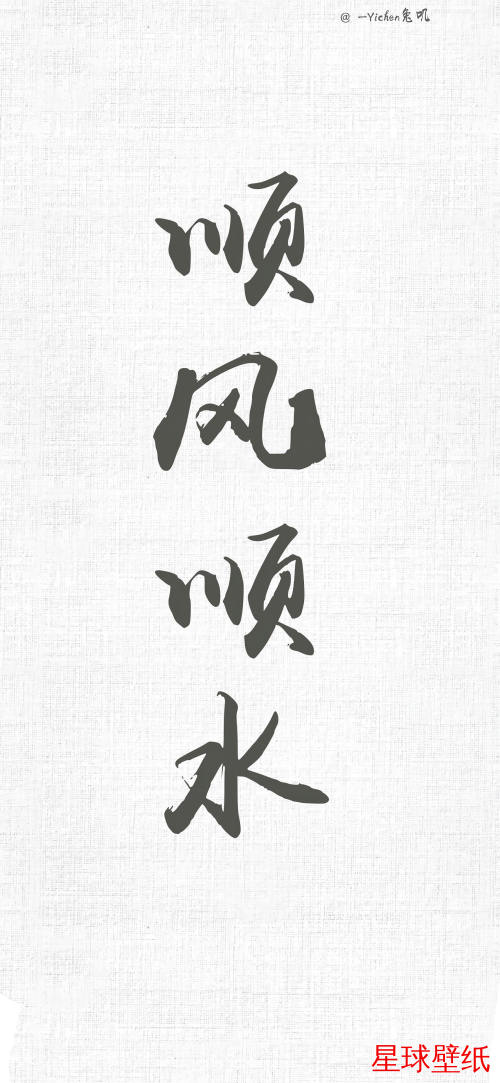 @一Yichen兔叽
顺风顺水
星球壁纸